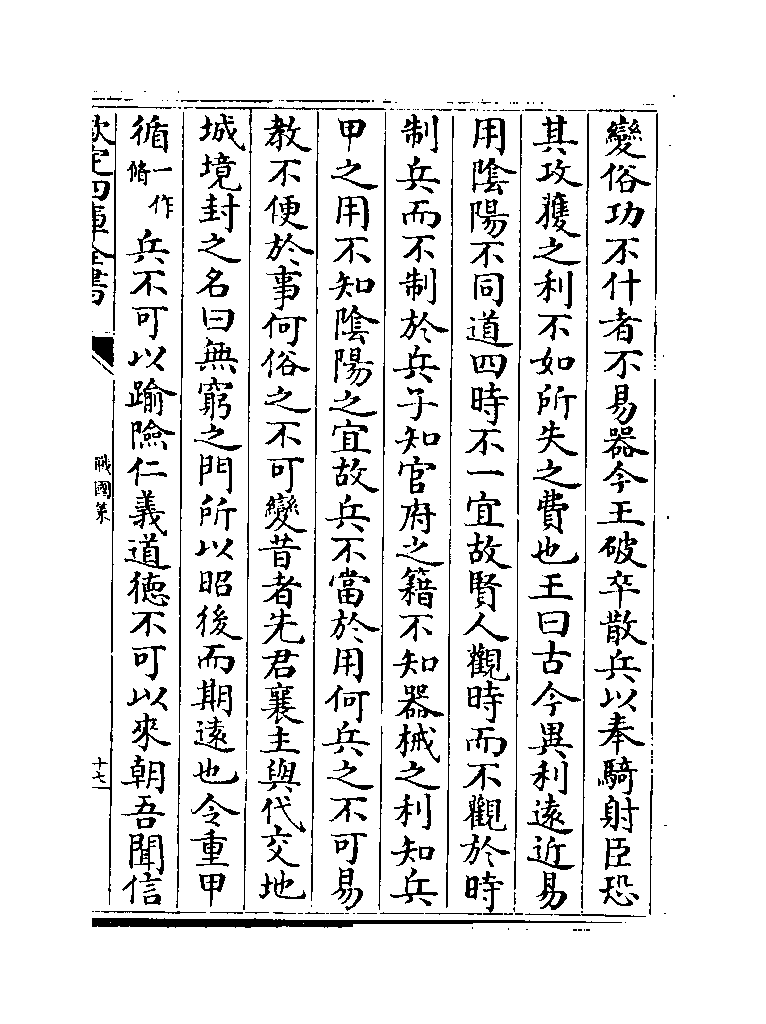 變俗功不什者不易器今王破卒散兵以奉騎射臣恐
其攻獲之利不如所失之費也王曰古今異利遠近易
用陰陽不同道四時不一宜故賢人觀時而不觀於時
制兵而不制於兵子知官府之籍不知器械之利知兵
甲之用不知陰陽之宜故兵不當於用何兵之不可易
教不便於事何俗之不可變昔者先君襄主與代交地
城境封之名曰無窮之門所以昭後而期遠也今重甲
循一作脩兵不可以踰險仁義道德不可以來朝吾聞信
欽定四庫全書
戰國策
十七